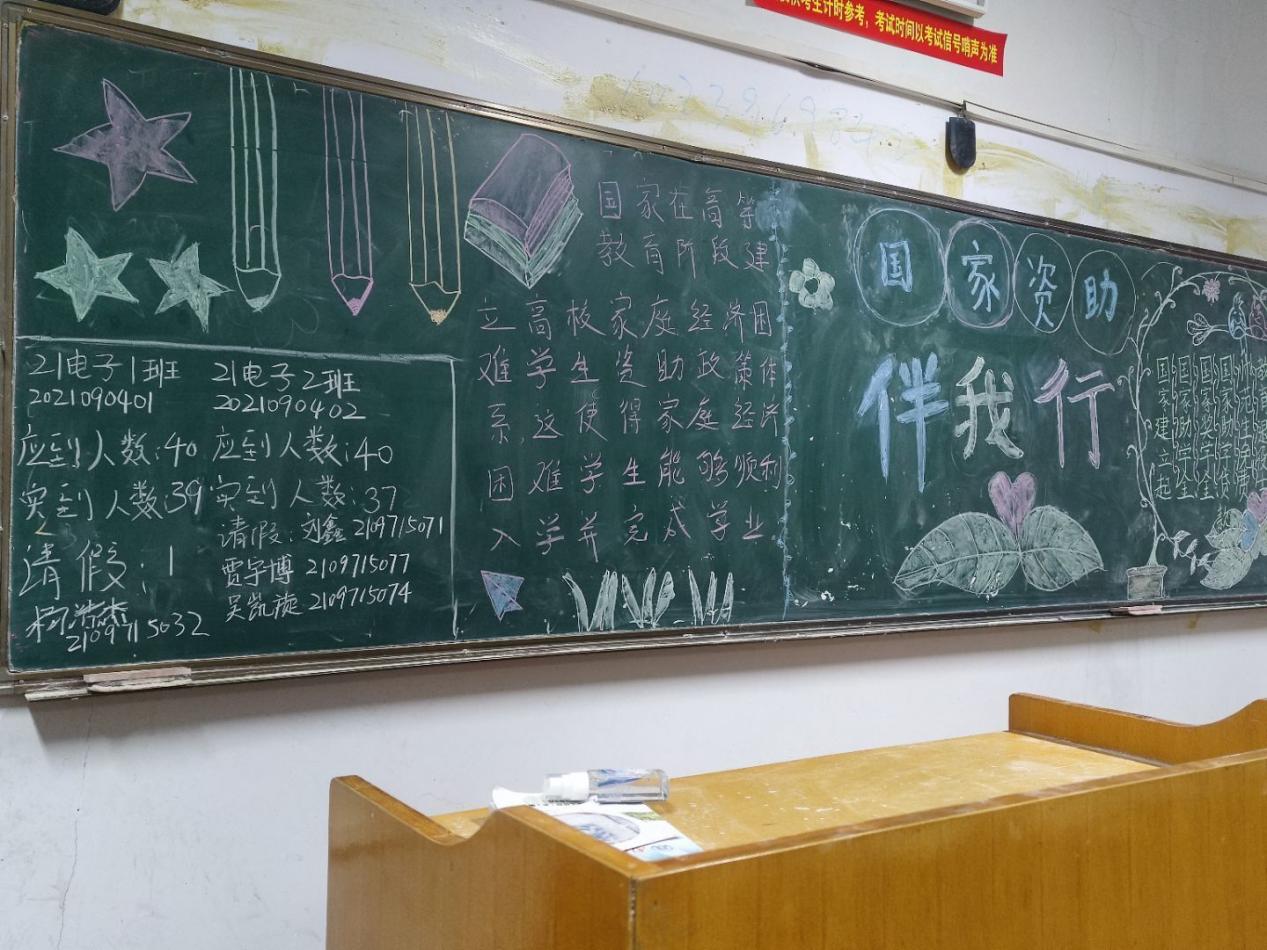 考生计时参考，考试时间以考试信号哨声为准
21电子1班
2021090401
应到人数:40
实到人数:39
请假:1
2109715032
21电子2班
2021090402
应到人数:40
实到人数:37
请假:刘鑫2109715071
贾宇博2109715077
吴凯璇2109715074
国家在高等
教育阶段建
立高校家庭经济困
难学生资助政策体
系,这使得家庭经济
困难学生能够顺利
入学并完成学业.
国家资助
伴我行
国家建立起
国家助学金
国家奖学金
国家助学贷